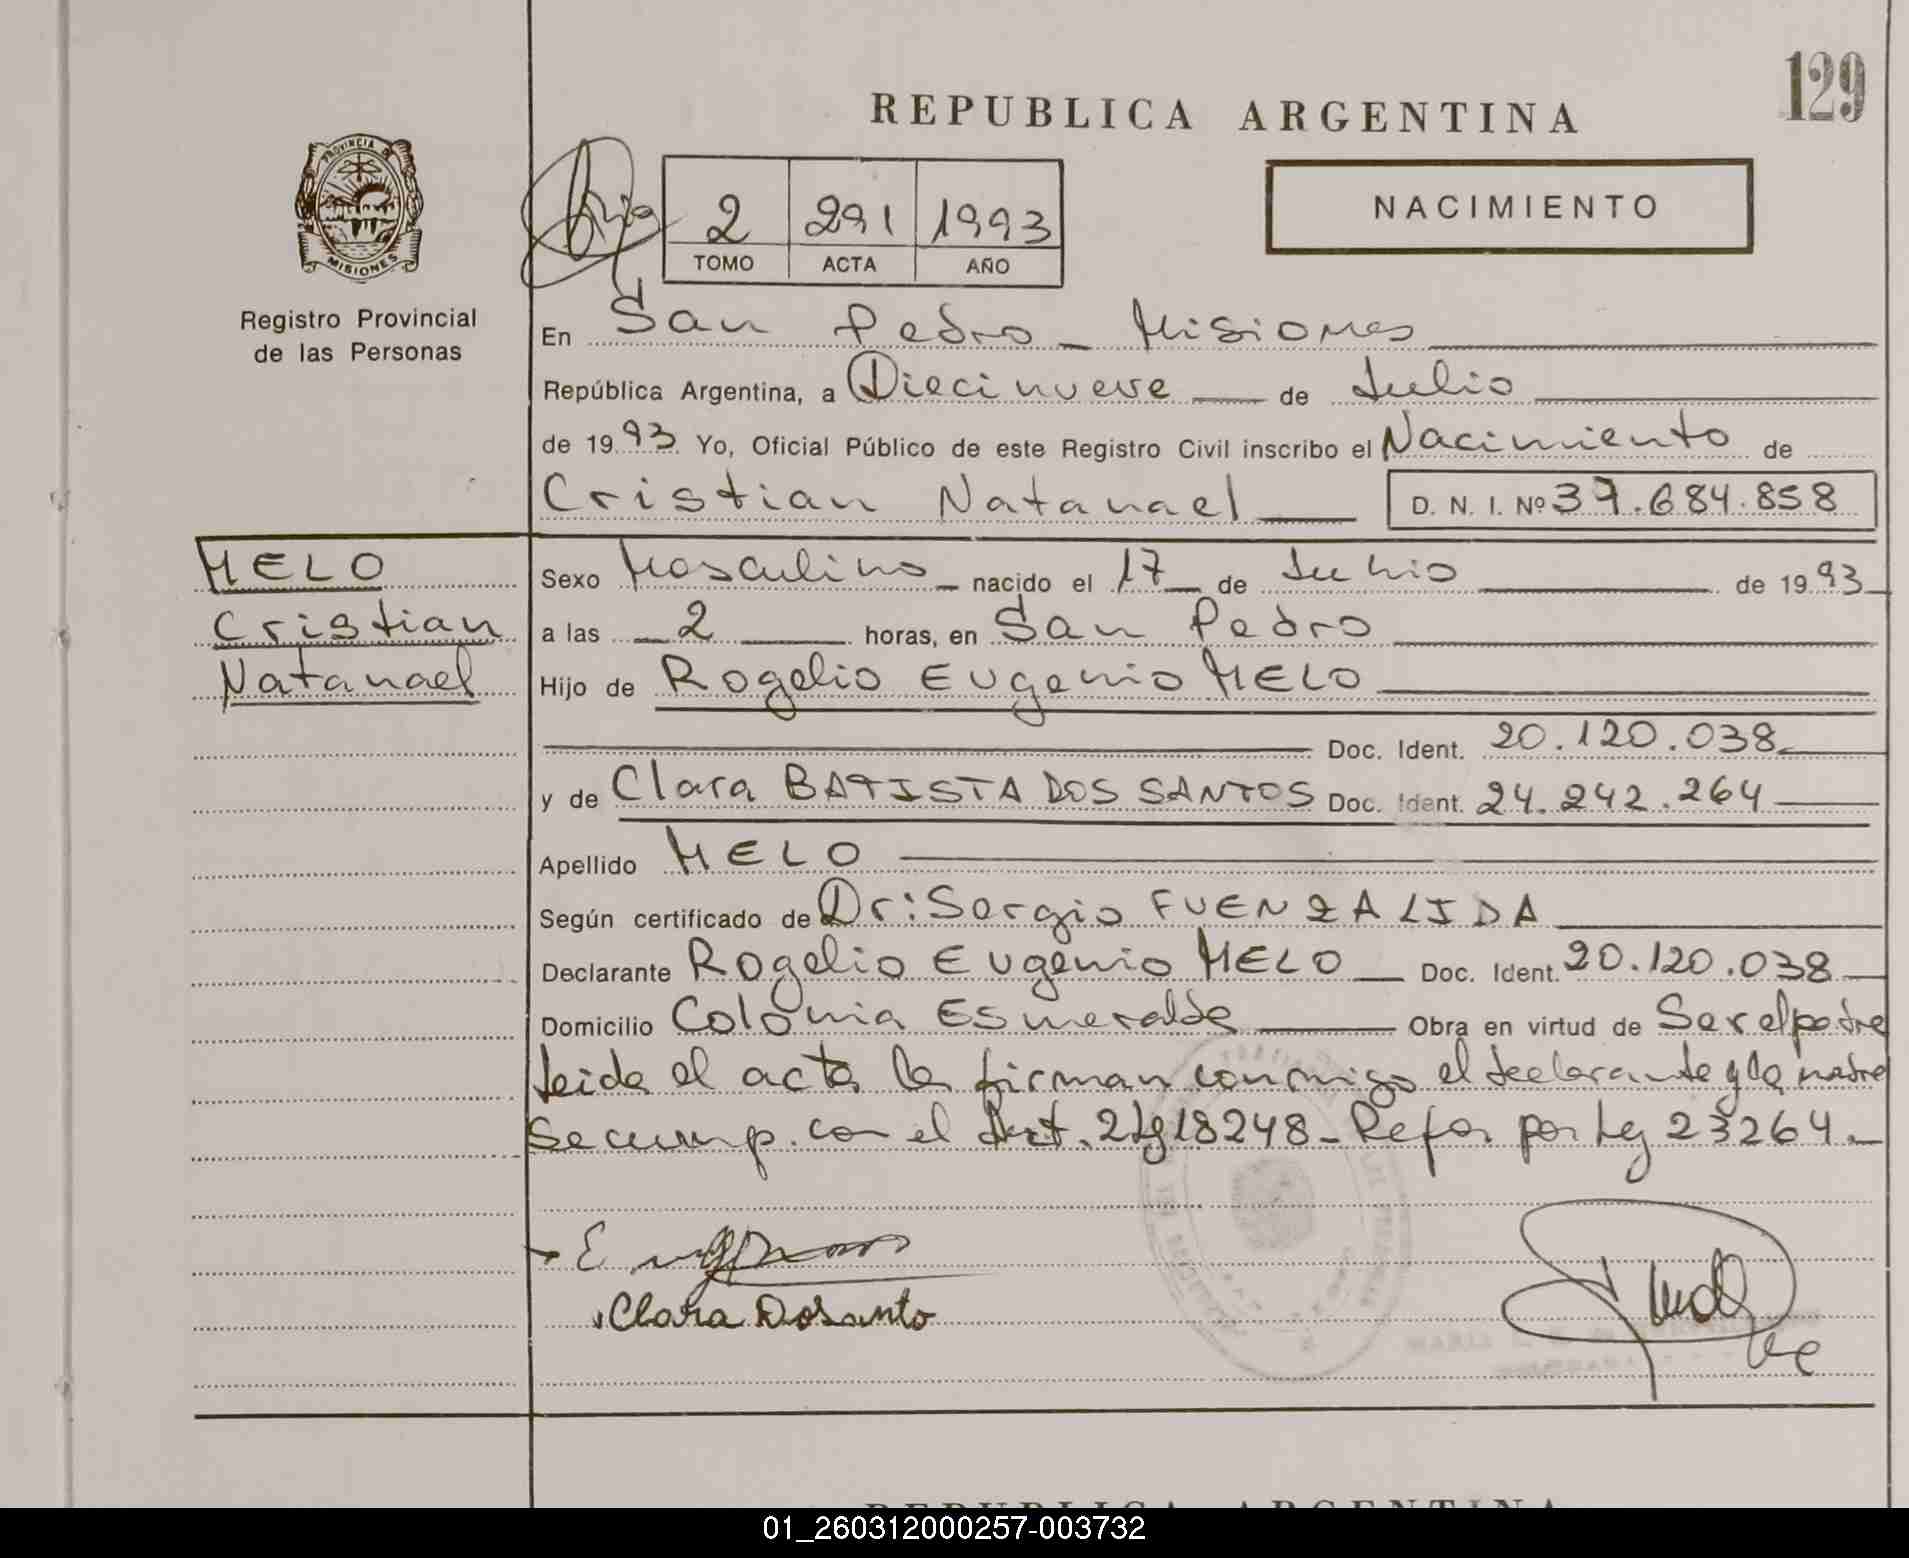 129
REPUBLICA ARGENTINA
PROVINCIA DE
MISIONES
Registro Provincial
de las Personas
2 291 1993
TOMO ACTA AÑO
NACIMIENTO
En San Pedro - Misiones
República Argentina, a Diecinueve de Julio
de 1993 Yo, Oficial Público de este Registro Civil inscribo el Nacimiento de
Cristian Natanael D. N. I. Nº 37.684.858
MELO
Cristian
Natanael
Sexo Masculino nacido el 17 de Junio de 1993
a las 2 horas, en San Pedro
Hijo de Rogelio Eugenio MELO
Doc. Ident. 20.120.038
y de Clara BATISTA DOS SANTOS Doc. Ident. 24.242.264
Apellido MELO
Según certificado de Dr: Sergio FUENZALIDA
Declarante Rogelio Eugenio MELO Doc. Ident. 20.120.038
Domicilio Colonia Esmeralda Obra en virtud de Ser el padre
Leida el acta la firman conmigo el declarante y la madre
se cump. con el Art. 2 Ley 18248 - Refor por Ley 23264.-
Clara Dosanto
REPUBLICA ARGENTINA
01_260312000257-003732